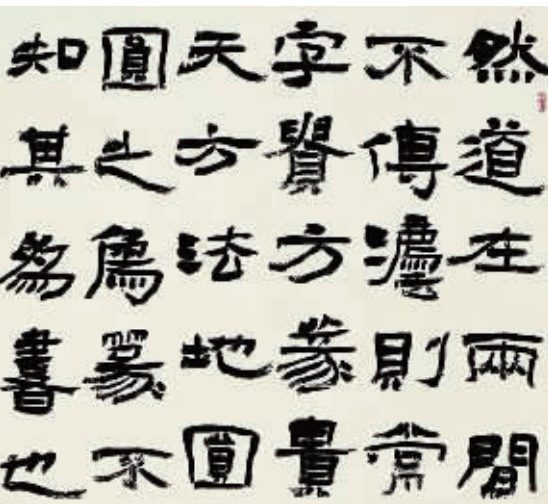 然道在兩間
不傳灋則常
字貴方篆貴
天方法地圓
圓之為篆不
知其為書也